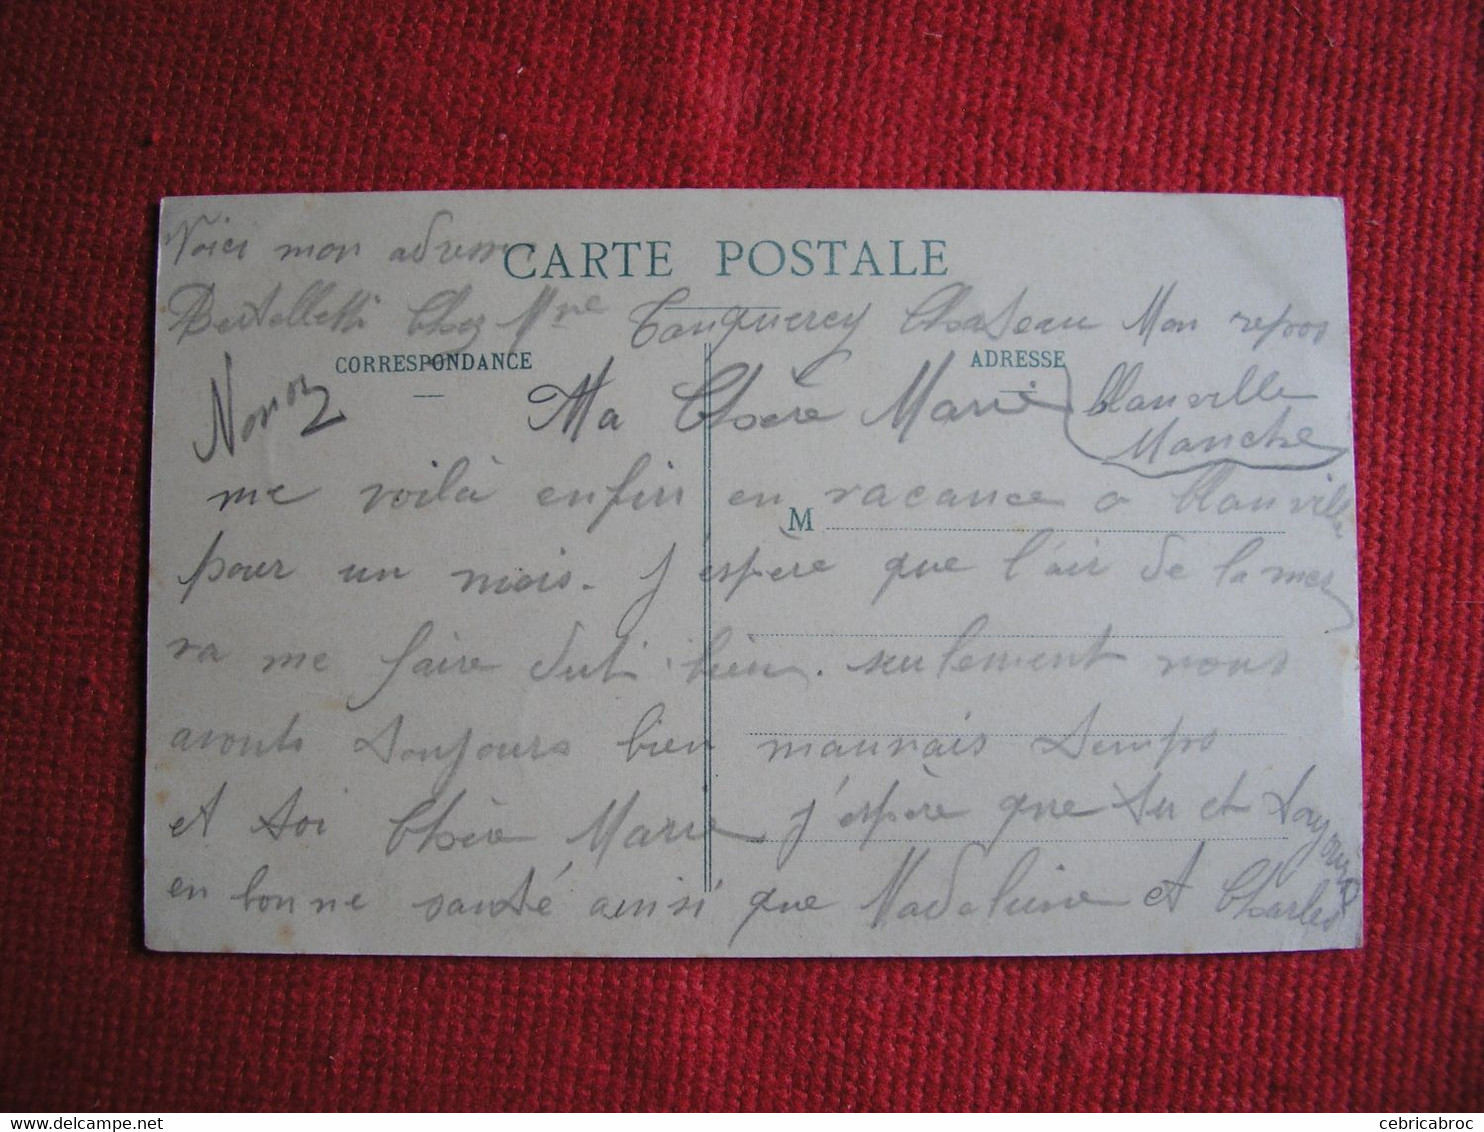 Voici mon adresse
CARTE POSTALE
Bertolletti Chez Mme Tanquerey Chateau Mon repos
CORRESPONDANCE
ADRESSE
Blanville
Manche
Ma Chère Marie
me voilà enfin en vacance a Blanville
M
pour un mois. J'espere que l'air de la mer
va me faire du bien. seulement nous
avonts toujours bien mauvais temps
et toi Chère Marie j'espère que tu et toujours
en bonne santé ainsi que Madeleine et Charles
cebricabroc